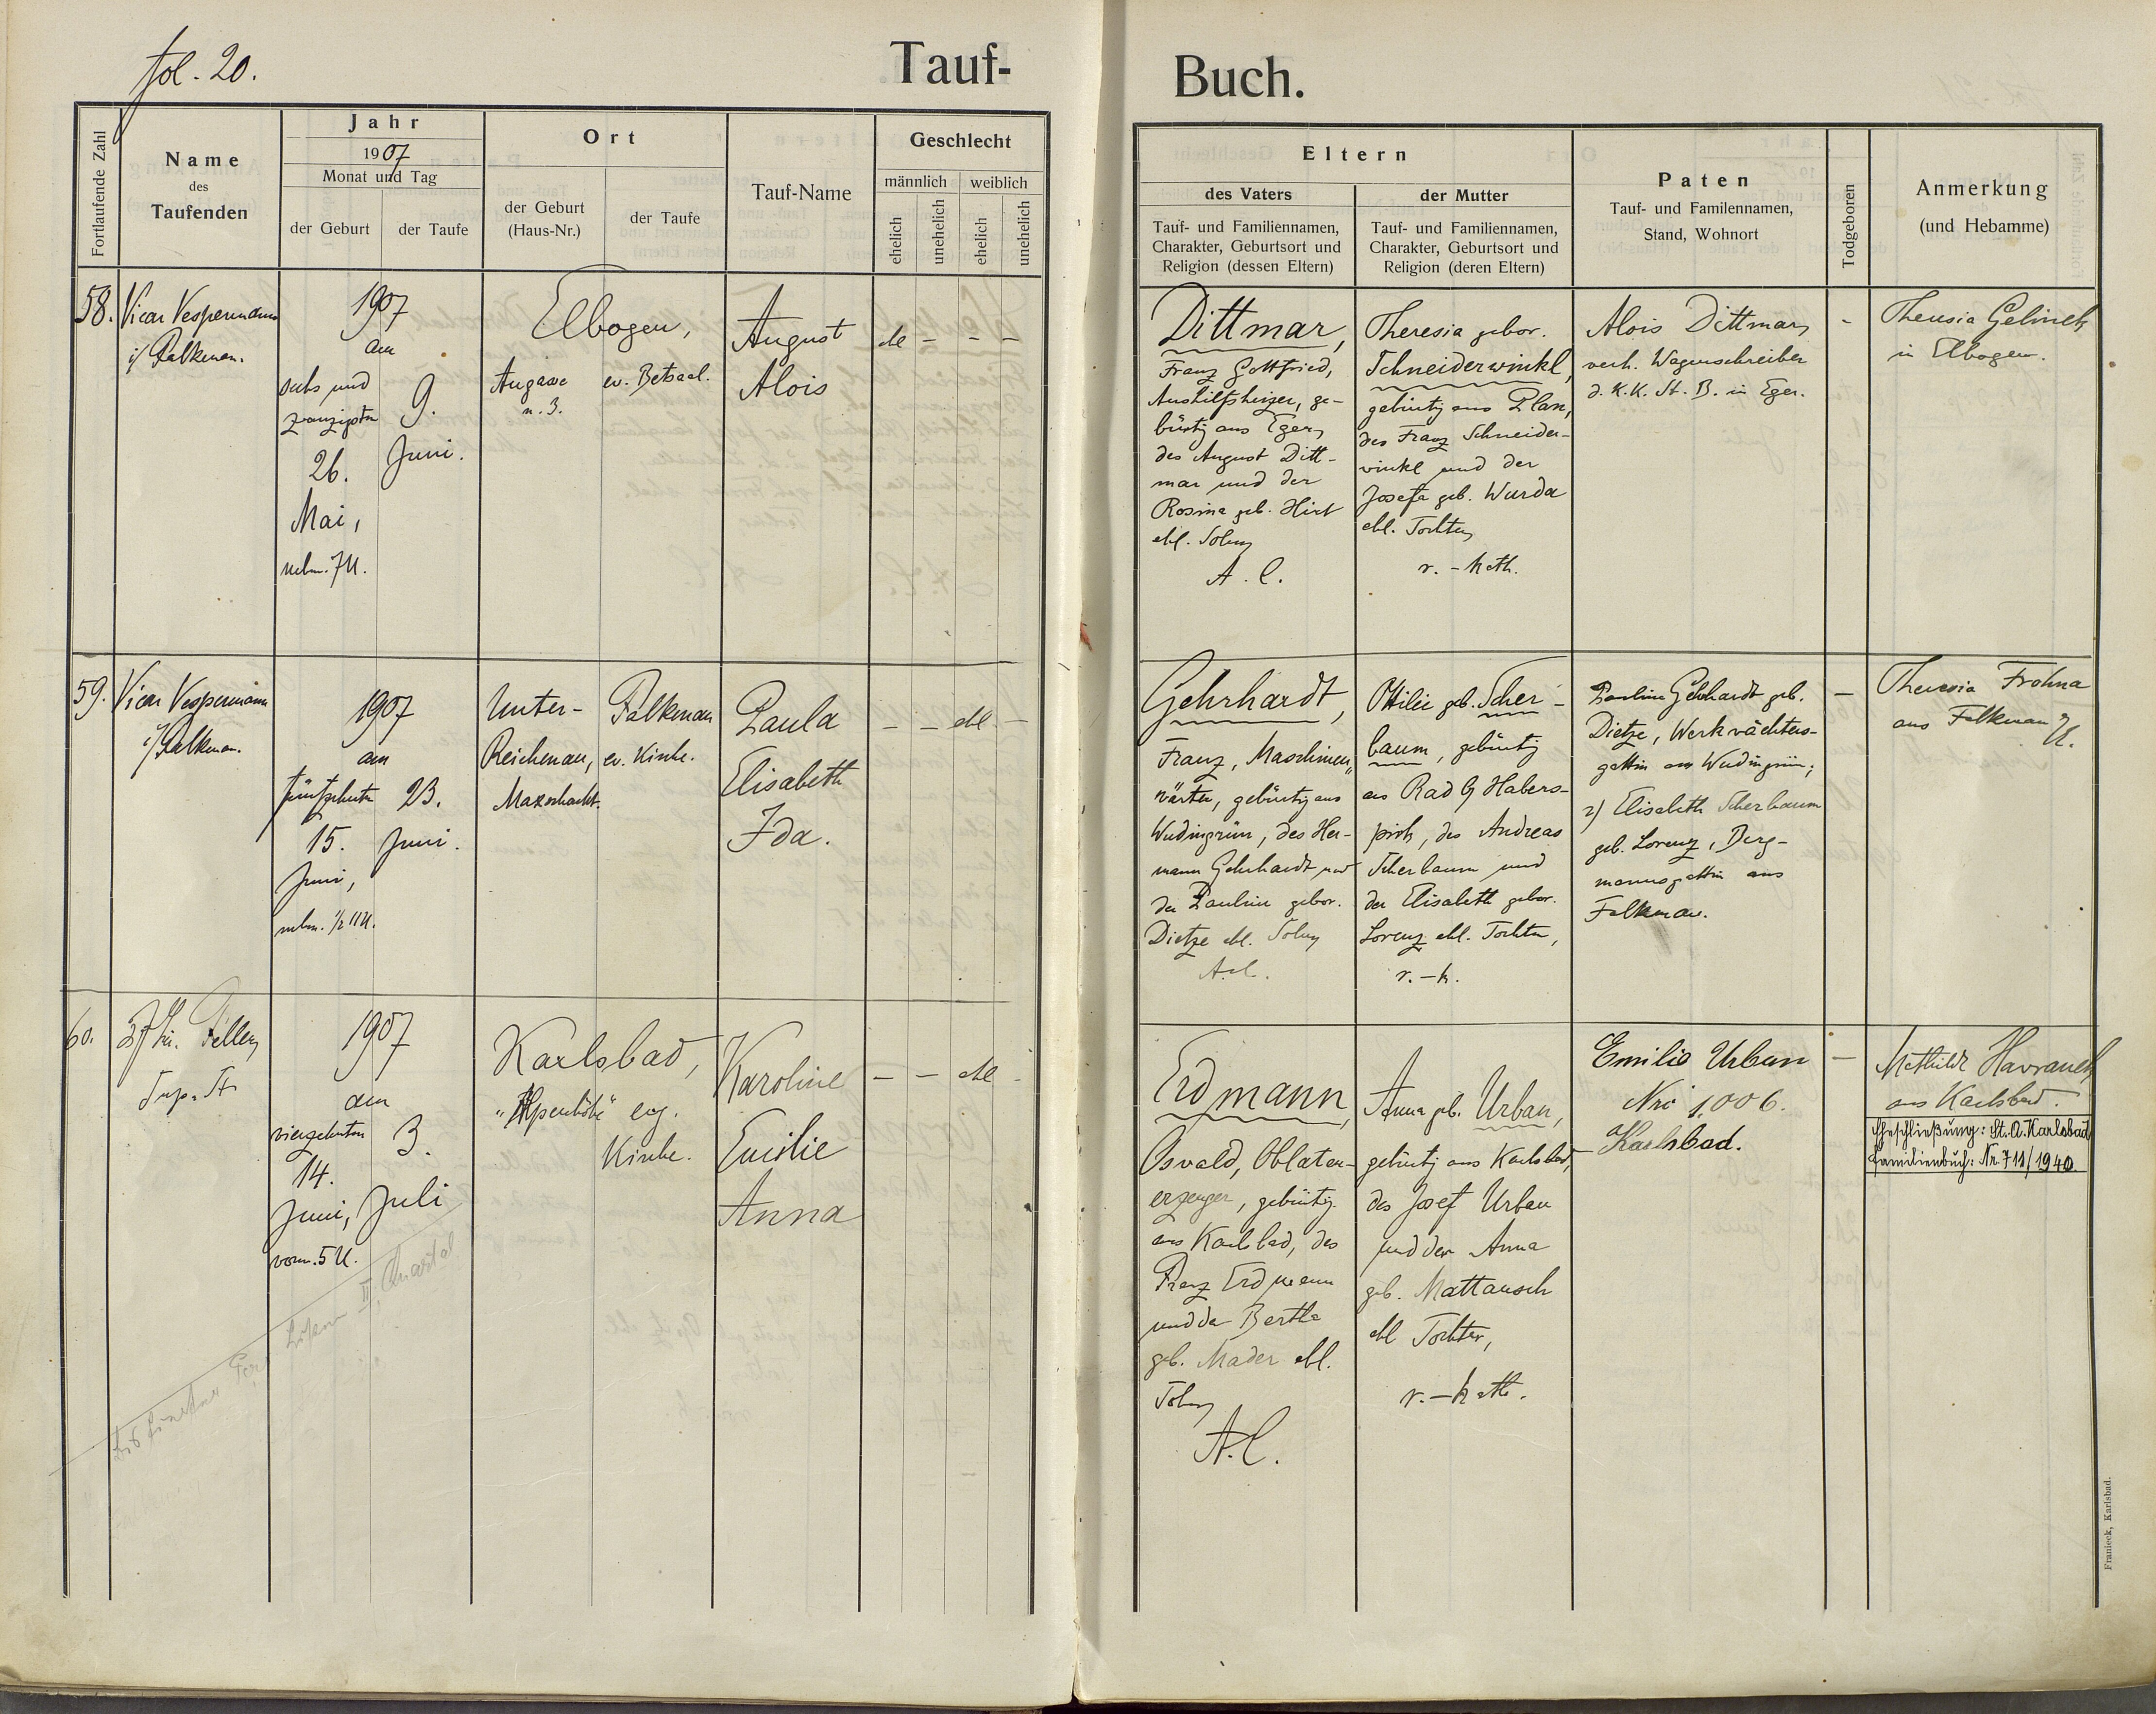 fol. 20.
Tauf-
Buch.
Fortlaufende Zahl
Name
des
Taufenden
Jahr
1907
Monat und Tag
der Geburt
der Taufe
Ort
der Geburt
(Haus-Nr.)
der Taufe
Tauf-Name
Geschlecht
männlich
weiblich
ehelich
unehelich
ehelich
unehelich
Eltern
des Vaters
Tauf- und Familiennamen,
Charakter, Geburtsort und
Religion (dessen Eltern)
der Mutter
Tauf- und Familiennamen,
Charakter, Geburtsort und
Religion (deren Eltern)
Paten
Tauf- und Familennamen,
Stand, Wohnort
Todgeboren
Anmerkung
(und Hebamme)
58.
Vicar Vespermann
i/ Falkenau.
1907
am
sechs und
zwanzigsten
26.
Mai,
nchm. 7 U.
9.
Juni.
Elbogen,
n. 3.
ev. Betsaal.
August
Alois
ehl - - -
Dittmar,
Franz Gottfried,
Aushilfsheizer, ge-
bürtig aus Eger,
des August Ditt-
mar und der
Rosina geb. Hirt
ehl. Sohn,
A. C.
Theresia gebor.
Schneiderwinkl,
gebürtig aus Plan,
des Franz Schneider-
winkl und der
Josefa geb. Wurda
ehl. Tochter,
r. - kath.
Alois Dittmar,
verh. Wagenschreiber
d. K. K. St. B. in Eger.
-
Theresia Gelinek
in Elbogen.
59.
Vicar Vespermann
i/ Falkenau.
1907
am
fünfzehnten
15.
Juni,
nchm. 1/2 11 U.
23.
Juni.
Unter-
Reichenau,
Maxschacht.
Falkenau
ev. Kirche.
Paula
Elisabeth
Ida.
- - ehl -
Gehrhardt,
Franz, Maschinen-
wärter, gebürtig aus
Wudingrün, des Her-
mann Gehrhardt und
der Pauline gebor.
Dietze ehl. Sohn,
A. C.
Ottilie geb. Scher-
baum, gebürtig
aus Rad b/ Habers-
pirk, des Andreas
Scherbaum und
der Elisabeth gebor.
Lorenz ehl. Tochter,
r. - k.
Pauline Gehrhardt geb.
Dietze, Werkwächters-
gattin aus Wudingrün;
2) Elisabeth Scherbaum
geb. Lorenz, Berg-
mannsgattin aus
Falkenau.
-
Theresia Frohna
aus Falkenau
60.
Feller,
1907
am
vierzehnten
14.
Juni,
vorm. 5 U.
3.
Juli
Karlsbad,
"Alpenhöhe"
evg.
Kirche.
Karoline
Emilie
Anna
- - ehl -
Erdmann,
Osvald, Oblaten-
erzeuger, gebürtig
aus Karlsbad, des
Franz Erdmann
und der Bertha
geb. Mader ehl.
Sohn,
A. C.
Anna geb. Urban,
gebürtig aus Karlsbad,
des Josef Urban
und der Anna
geb. Mattausch
ehl Tochter,
r. - kath.
Emilie Urban
Nro 1006.
Karlsbad.
-
Mathilde Havranek
aus Karlsbad.
Eheschließung: St. A. Karlsbad
Familienbuch: Nr. 711/1940.
II. Quartal
Franieck, Karlsbad.